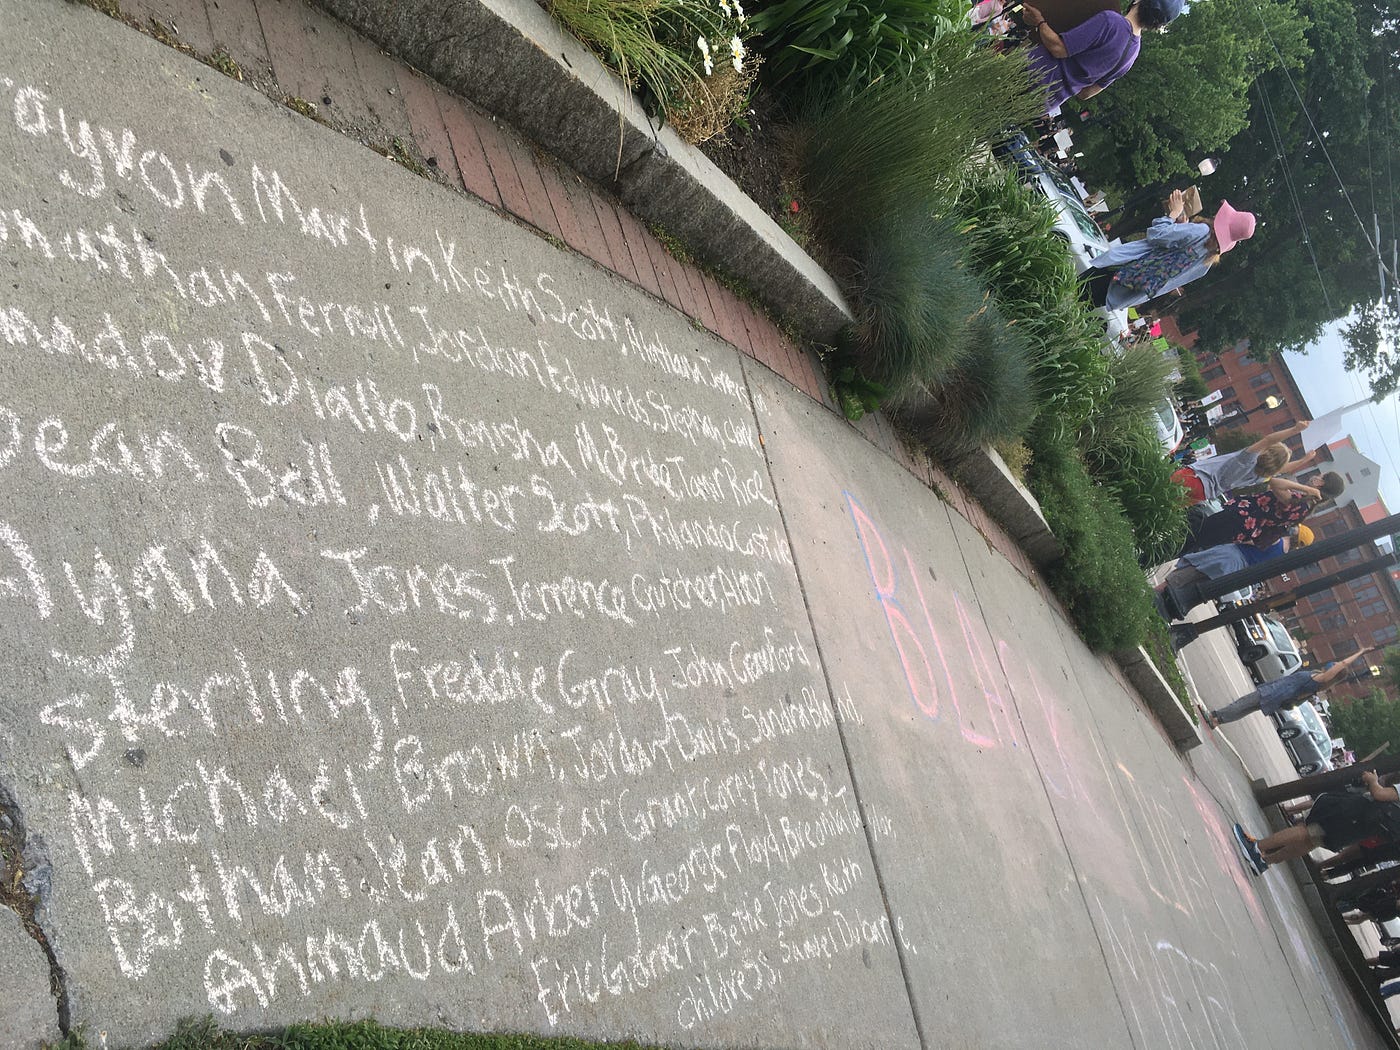 ayvon Martin Keith Scott, Attatiana Jeffers
nathan Ferrell, Jordan Edwards, Stephan Clark
madou Diallo, Renisha McBride Tamir Rice
Sean Bell, Walter Scott, Philando Castile
Aiyanna Jones, Terrence Cutcher, Alton
Sterling, Freddie Gray, John Crawford
Michael Brown, Jordan Davis, Sandra Bland
Bothan Jean, Oscar Grant, Corey Jones
Ahmaud Arbery, George Floyd, Breonna Taylor,
Eric Garner Bettie Jones, Keith
Childress, Samuel Dubose,
BLACK
LIVES
MATTER